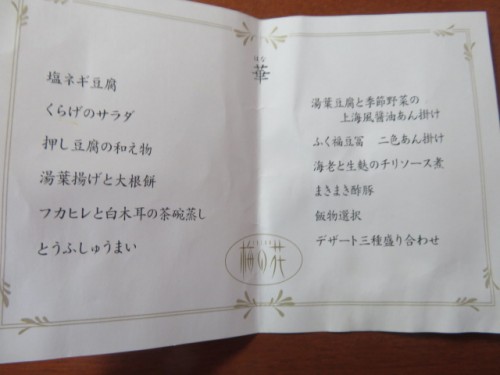 はな
華
塩ネギ豆腐
くらげのサラダ
押し豆腐の和え物
湯葉揚げと大根餅
フカヒレと白木耳の茶碗蒸し
とうふしゅうまい
湯葉豆腐と季節野菜の
上海風醤油あん掛け
ふく福豆冨 二色あん掛け
海老と生麩のチリソース煮
まきまき酢豚
飯物選択
デザート三種盛り合わせ
梅の花